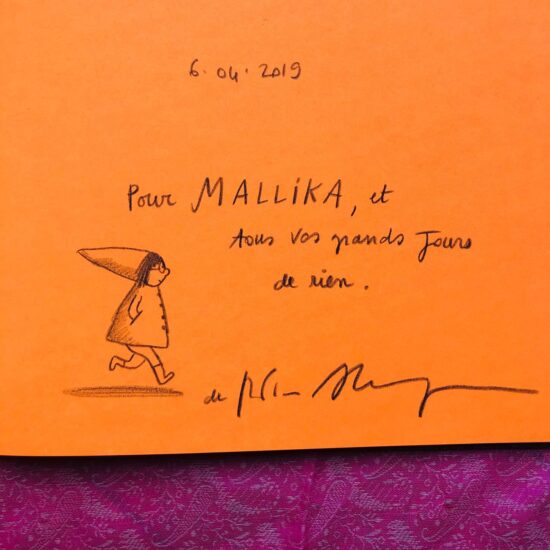 6.04.2019
Pour MALLIKA, et
tous vos grands Jours
de rien.
de